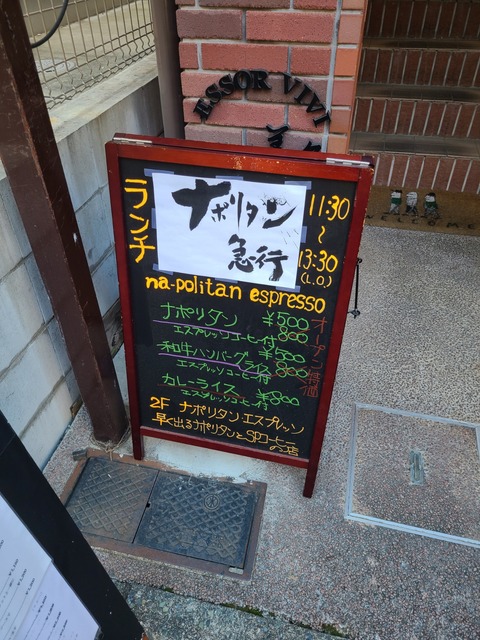 ESSOR VIVI
ランチ
ナポリタン
急行
11:30
~
13:30
(L.O.)
na-politan espresso
ナポリタン ¥500
エスプレッソコーヒー付 800
和牛ハンバーグライス ¥500
エスプレッソコーヒー付 800
カレーライス ¥800
エスプレッソコーヒー付
オープン特価
2F ナポリタン・エスプレッソ
早く出るナポリタンとSPコーヒー
の店